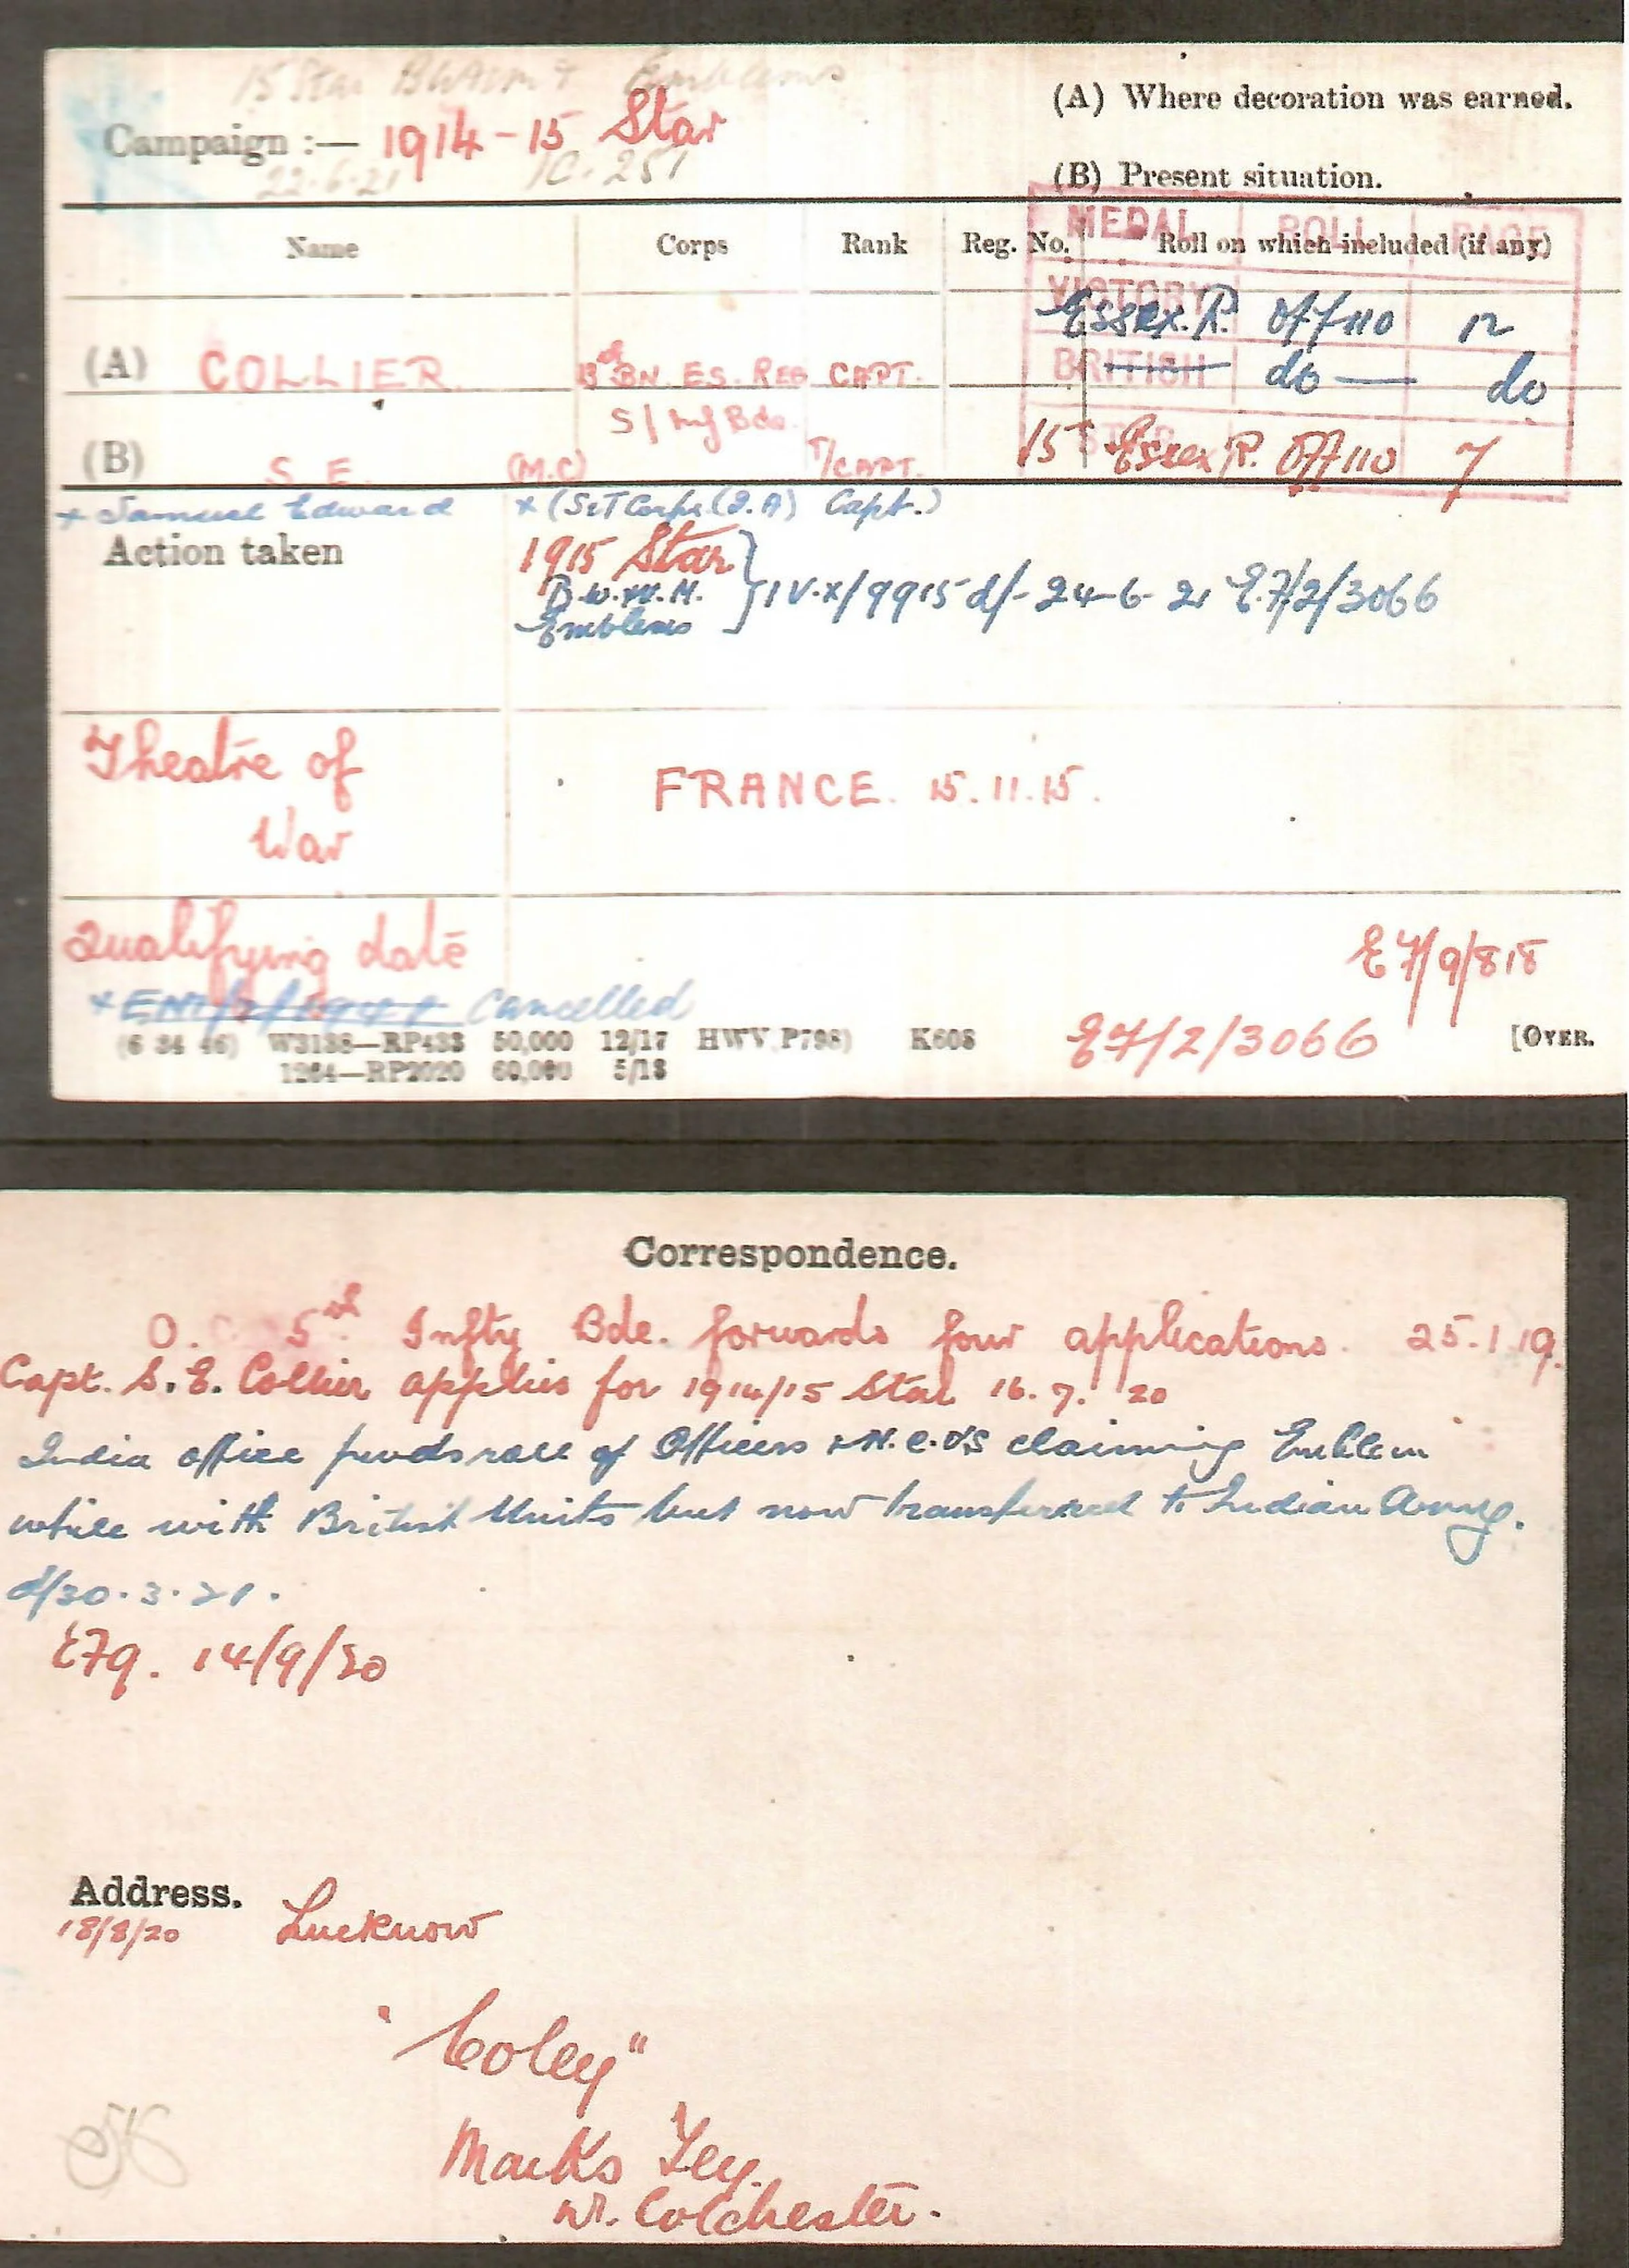 15 Star BWM & Emblems
Campaign :— 1914-15 Star
22.6.21 IC. 251
(A) Where decoration was earned.
(B) Present situation.
Name Corps Rank Reg. No. Roll on which included (if any)
MEDAL ROLL PAGE
VICTORY Essex. R. Off 110 12
(A) COLLIER 13th BN. ES. REG CAPT.
BRITISH do — do
5/ Inf Bde.
(B) S. E. (M.C) T/CAPT.
15 STAR Essex R. Off 110 7
x Samuel Edward x (S&T Corps (I.A) Capt.)
Action taken
1915 Star
B.W.&V.M.
Emblems
IV.X/9915 d/- 24-6-21 E.7/2/3066
Theatre of
War
FRANCE. 15.11.15.
Qualifying date
E7/9/818
Cancelled
(6 34 46) W3188—RP433 50,000 12/17 HWV P798) K608
E7/2/3066
[OVER.
1264—RP2020 60,000 5/18
Correspondence.
O. C 5th Infty Bde. forwards four applications. 25.1.19.
Capt. S. E. Collier applies for 1914/15 Star 16. 7. 20
India office fwds roll of Officers & N.C.O's claiming Emblem
while with British Units but now transferred to Indian Army.
d/30.3.21.
E7q. 14/9/20
Address.
18/8/20 Lucknow
"Coley"
Marks Tey.
Nr. Colchester.